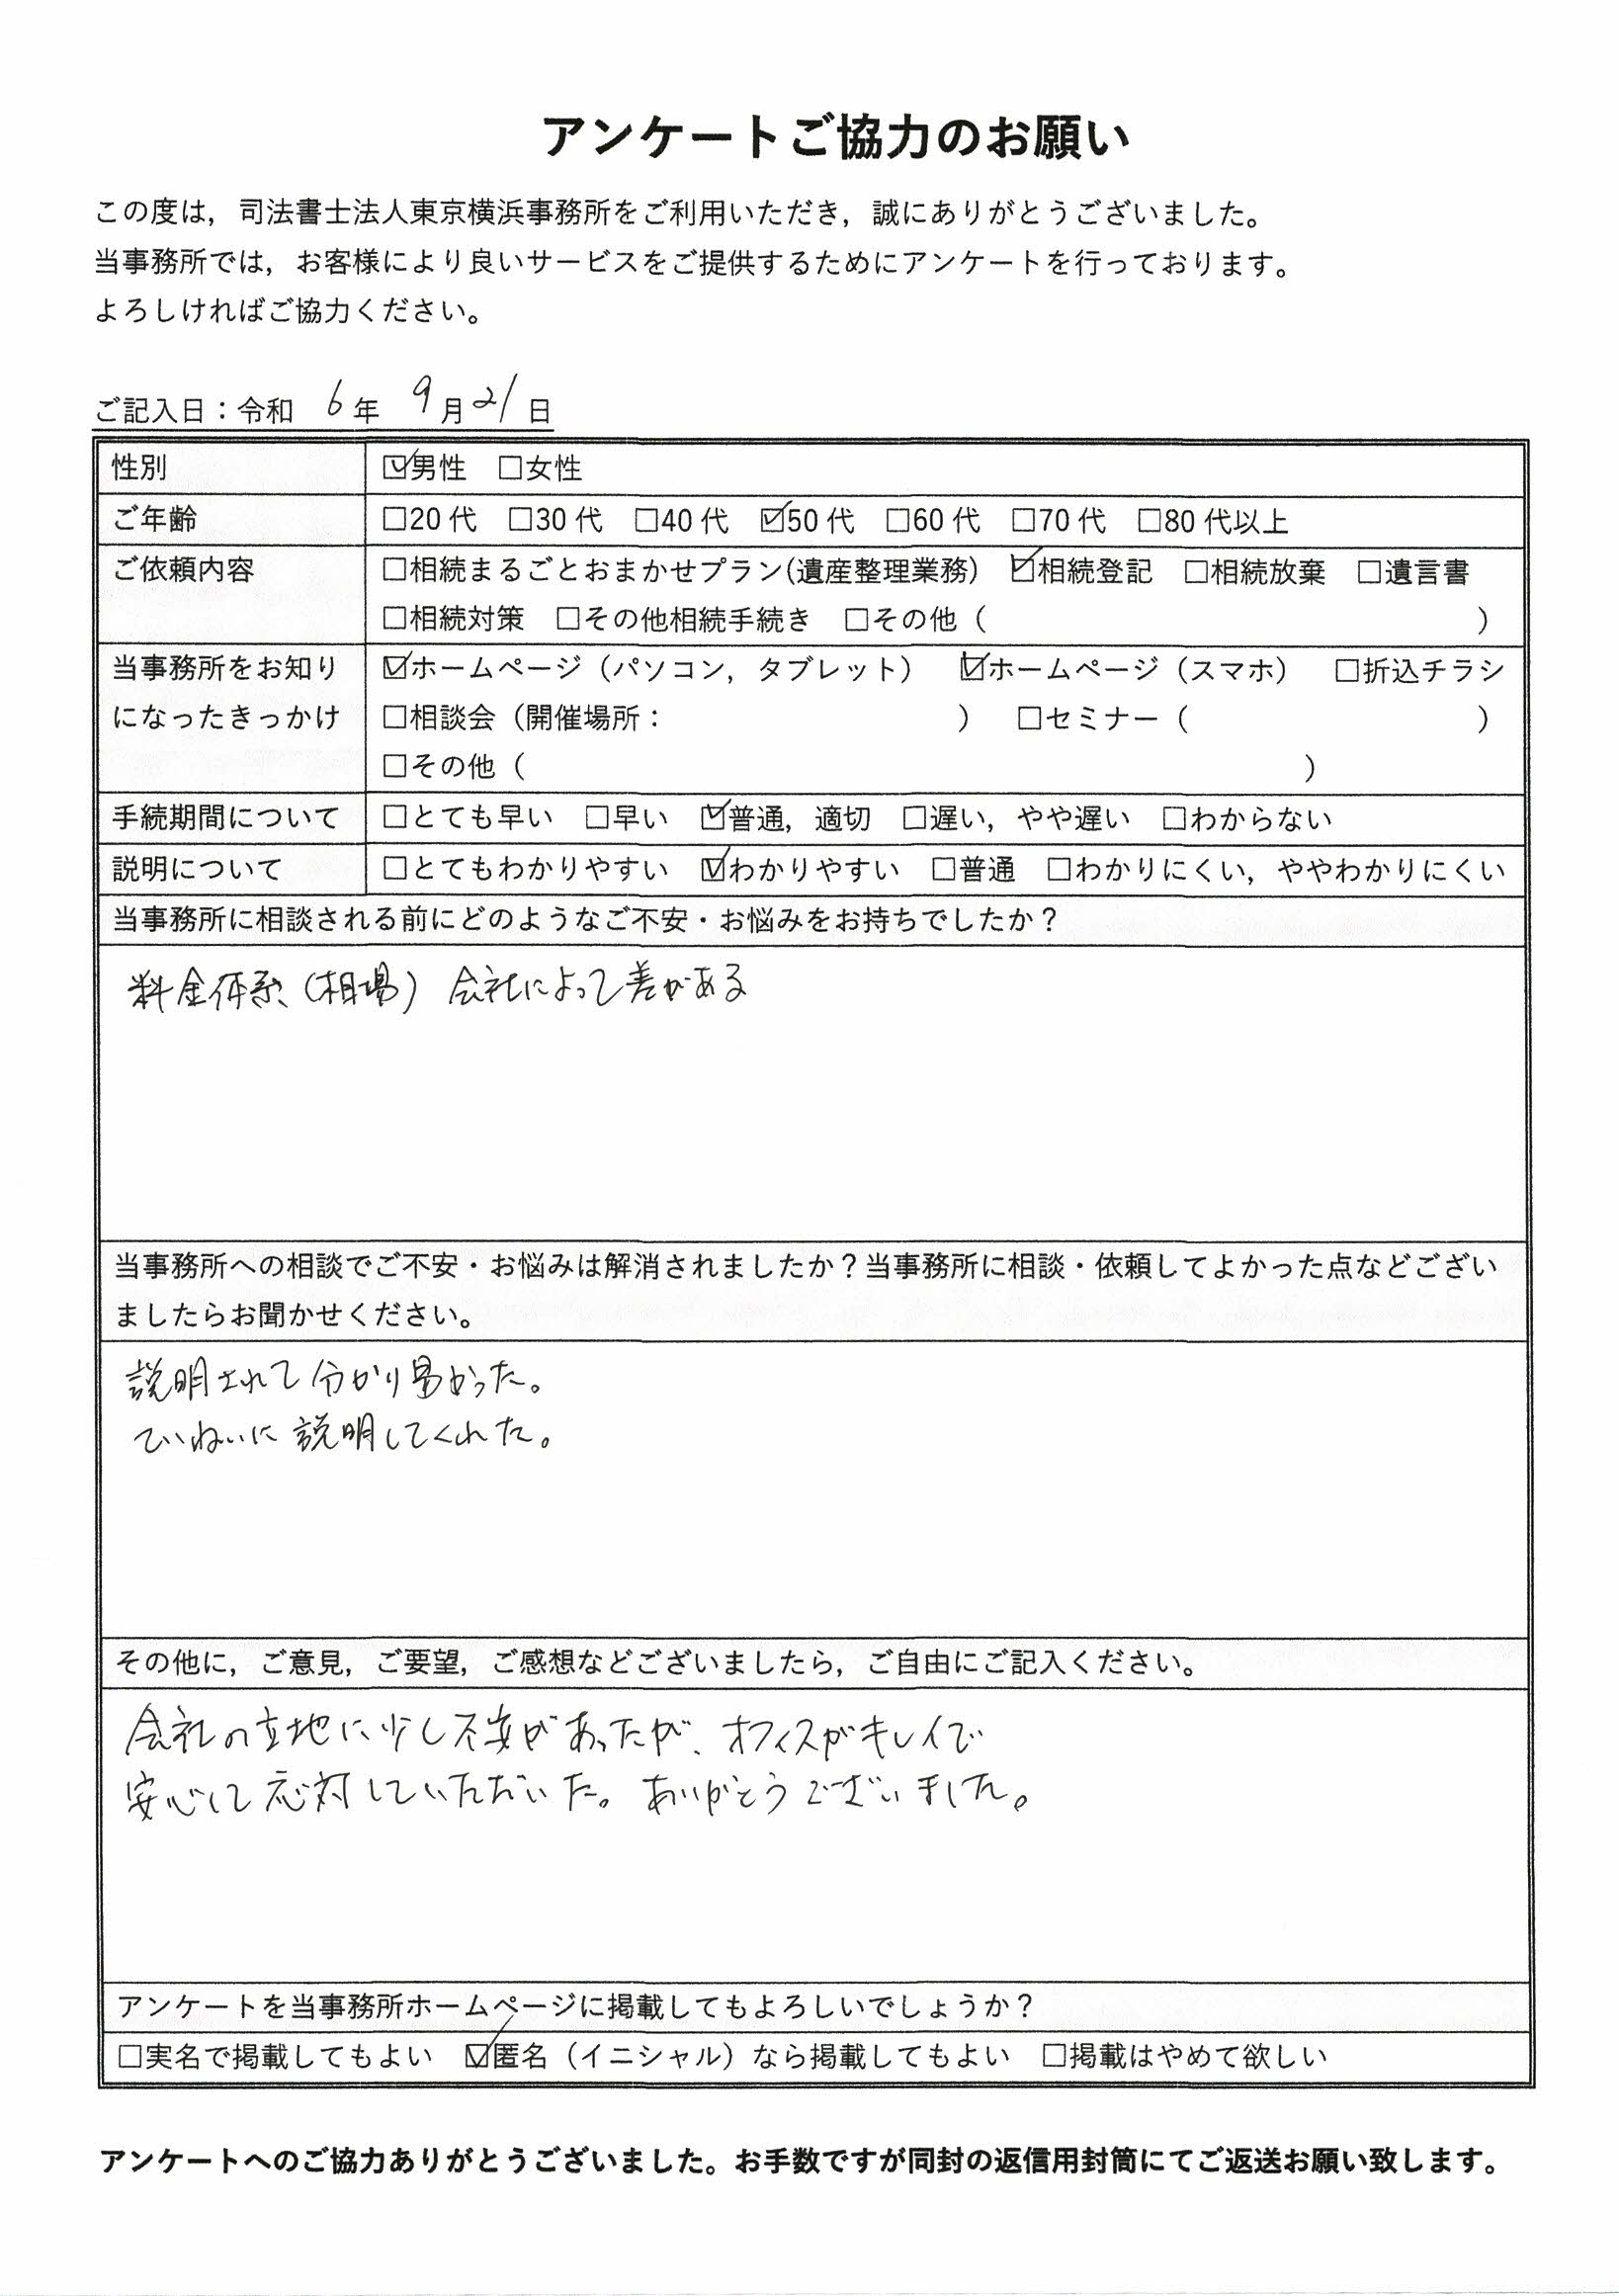 アンケートご協力のお願い
この度は，司法書士法人東京横浜事務所をご利用いただき，誠にありがとうございました。
当事務所では，お客様により良いサービスをご提供するためにアンケートを行っております。
よろしければご協力ください。
ご記入日：令和 6年 9月21日
性別 ☑男性 □女性
ご年齢 □20代 □30代 □40代 ☑50代 □60代 □70代 □80代以上
ご依頼内容 □相続まるごとおまかせプラン(遺産整理業務) ☑相続登記 □相続放棄 □遺言書
□相続対策 □その他相続手続き □その他（ ）
当事務所をお知り ☑ホームページ（パソコン，タブレット） ☑ホームページ（スマホ） □折込チラシ
になったきっかけ □相談会（開催場所： ） □セミナー（ ）
□その他（ ）
手続期間について □とても早い □早い ☑普通，適切 □遅い，やや遅い □わからない
説明について □とてもわかりやすい ☑わかりやすい □普通 □わかりにくい，ややわかりにくい
当事務所に相談される前にどのようなご不安・お悩みをお持ちでしたか？
料金体系（相場）会社によって差がある
当事務所への相談でご不安・お悩みは解消されましたか？当事務所に相談・依頼してよかった点などござい
ましたらお聞かせください。
説明されて分かり易かった。
ていねいに説明してくれた。
その他に，ご意見，ご要望，ご感想などございましたら，ご自由にご記入ください。
会社の立地に少し不安があったが、オフィスがキレイで
安心して応対していただいた。ありがとうございました。
アンケートを当事務所ホームページに掲載してもよろしいでしょうか？
□実名で掲載してもよい ☑匿名（イニシャル）なら掲載してもよい □掲載はやめて欲しい
アンケートへのご協力ありがとうございました。お手数ですが同封の返信用封筒にてご返送お願い致します。